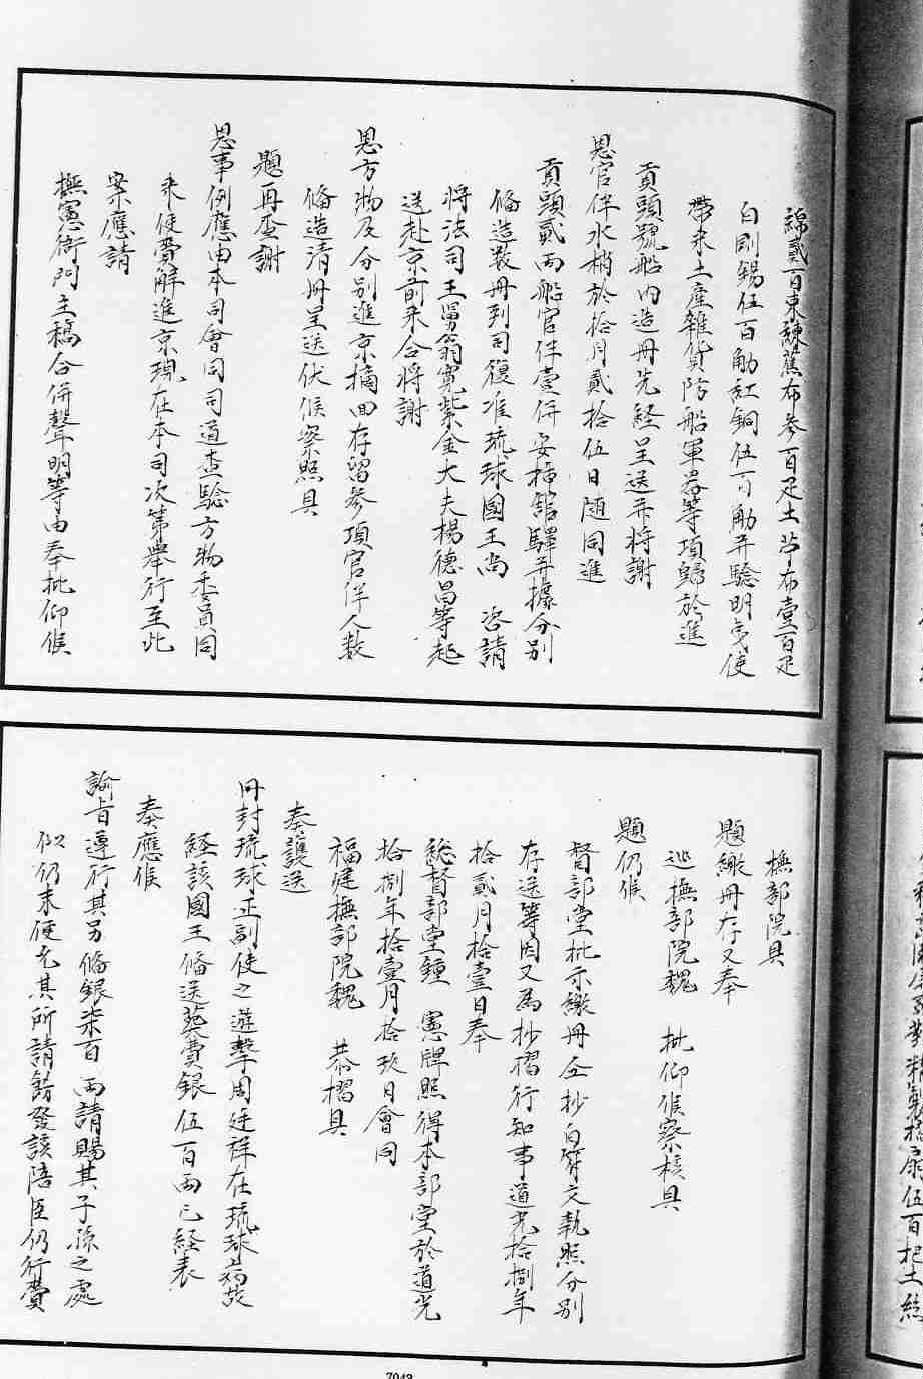 綿貳百束練蕉布參百疋土苧布壹百疋
白剛錫伍百觔紅銅伍百觔并驗明來使
帶來土產雜貨防船軍器等項歸於進
貢頭號船內造冊先經呈送并將謝
恩官伴水梢於拾月貳拾伍日隨同進
貢頭貳兩船官伴壹併安插館驛并據分別
備造數冊到司復准琉球國王尚 咨請
將法司王舅翁寬紫金大夫楊德昌等起
送赴京前來合將謝
恩方物及分別進京摘回存留參項官伴人數
備造清冊呈送伏候察照具
題再查謝
恩事例應由本司會同司道查驗方物委員同
來使齎解進京現在本司次第舉行至此
案應請
撫憲衙門主稿合併聲明等由奉批仰候
撫部院具
題繳冊存又奉
巡撫部院魏 批仰候察核具
題仍候
督部堂批示繳冊仝抄白齎文執照分別
存送等因又為抄摺行知事道光拾捌年
拾貳月拾壹日奉
總督部堂鍾 憲牌照得本部堂於道光
拾捌年拾壹月拾玖日會同
福建撫部院魏 恭摺具
奏護送
冊封琉球正副使之遊擊周廷祥在琉球病故
經該國王備送葬費銀伍百兩已經表
奏應候
諭旨遵行其另備銀柒百兩請賜其子孫之處
似仍未便允其所請飭發該陪臣仍行齎
7043